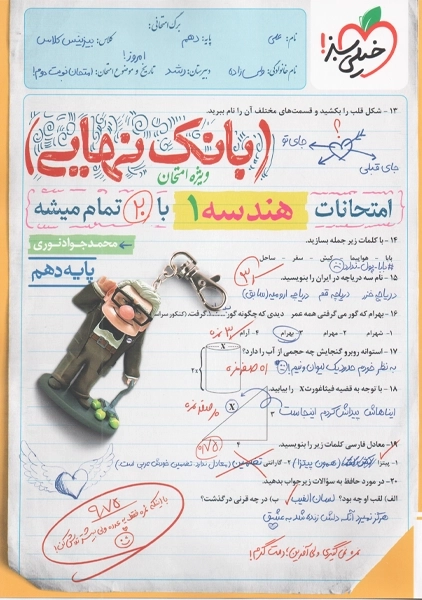 برگ امتحانی:
نام: علی
پایه: دهم
کلاس: بیزینس کلاس
نام خانوادگی:
دبیرستان: رشد
تاریخ و موضوع امتحان: امروز! امتحان نوبت دوم!
خیلی سبز!
۱۳ - شکل قلب را بکشید و قسمت‌های مختلف آن را نام ببرید.
؟
جای تو
جای قبلی
(بانک نهایی)
ویژه امتحان
امتحانات هندسه ۱ با ۲۰ تمام میشه
محمدجواد نوری
پایه دهم
۱۴ - با کلمات زیر جمله بسازید.
بابا - هواپیما - کیش - سفر - ساحل
#بابا_پول_ندارد
۱۵ - نام سه دریاچه در ایران را بنویسید.
دریاچه خزر دریاچه قم دریاچه ارومیه (سابق)
۱۶ - بهرام که گور می گرفتی همه عمر دیدی که چگونه گور بهرام گرفت. (کنکور سراسری
۱- شهرام ۲- مهرام ۳- بهرام ۴- آرام
۳ نمره
۱۷ - استوانه روبرو گنجایش چه حجمی از آب را دارد؟
به نظر خودم حدود یک لیوان و نیم!
X
۲x
۱۸ - با توجه به قضیه فیثاغورث X را بیابید.
ایناهاش پیداش کردم اینجاست
X
۳
۴
۱۹ - معادل فارسی کلمات زیر را بنویسید.
۱- پیتزا
(همون پیتزا)
۲- گارانتی
۲۰ - در مورد حافظ به سؤالات زیر جواب بدهید.
الف) لقب او چه بود؟ لسان الغیب
ب) در چه قرنی درگذشت؟
هرگز نمیرد آنکه دلش زنده شد به عشق
۹/۷۵
نمره می‌گیری ولی آفرین! دمت گرم!